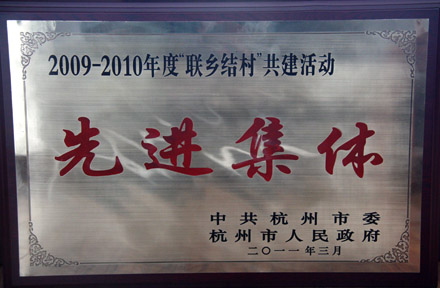 2009-2010年度“联乡结村”共建活动
先进集体
中共杭州市委
杭州市人民政府
二〇一一年三月